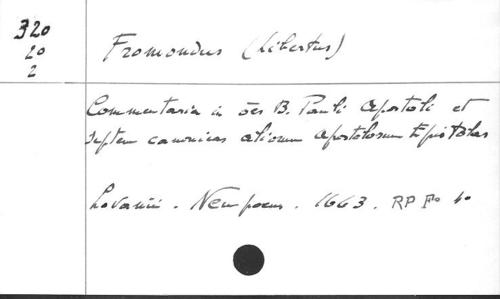 320
20
2
Fromondus (Libertus)
Commentaria in ōes B. Pauli Apostoli et
septem canonicas aliorum Apostolorum Epistolas
Lovanii. Nempoeus. 1663. RP Fº 40